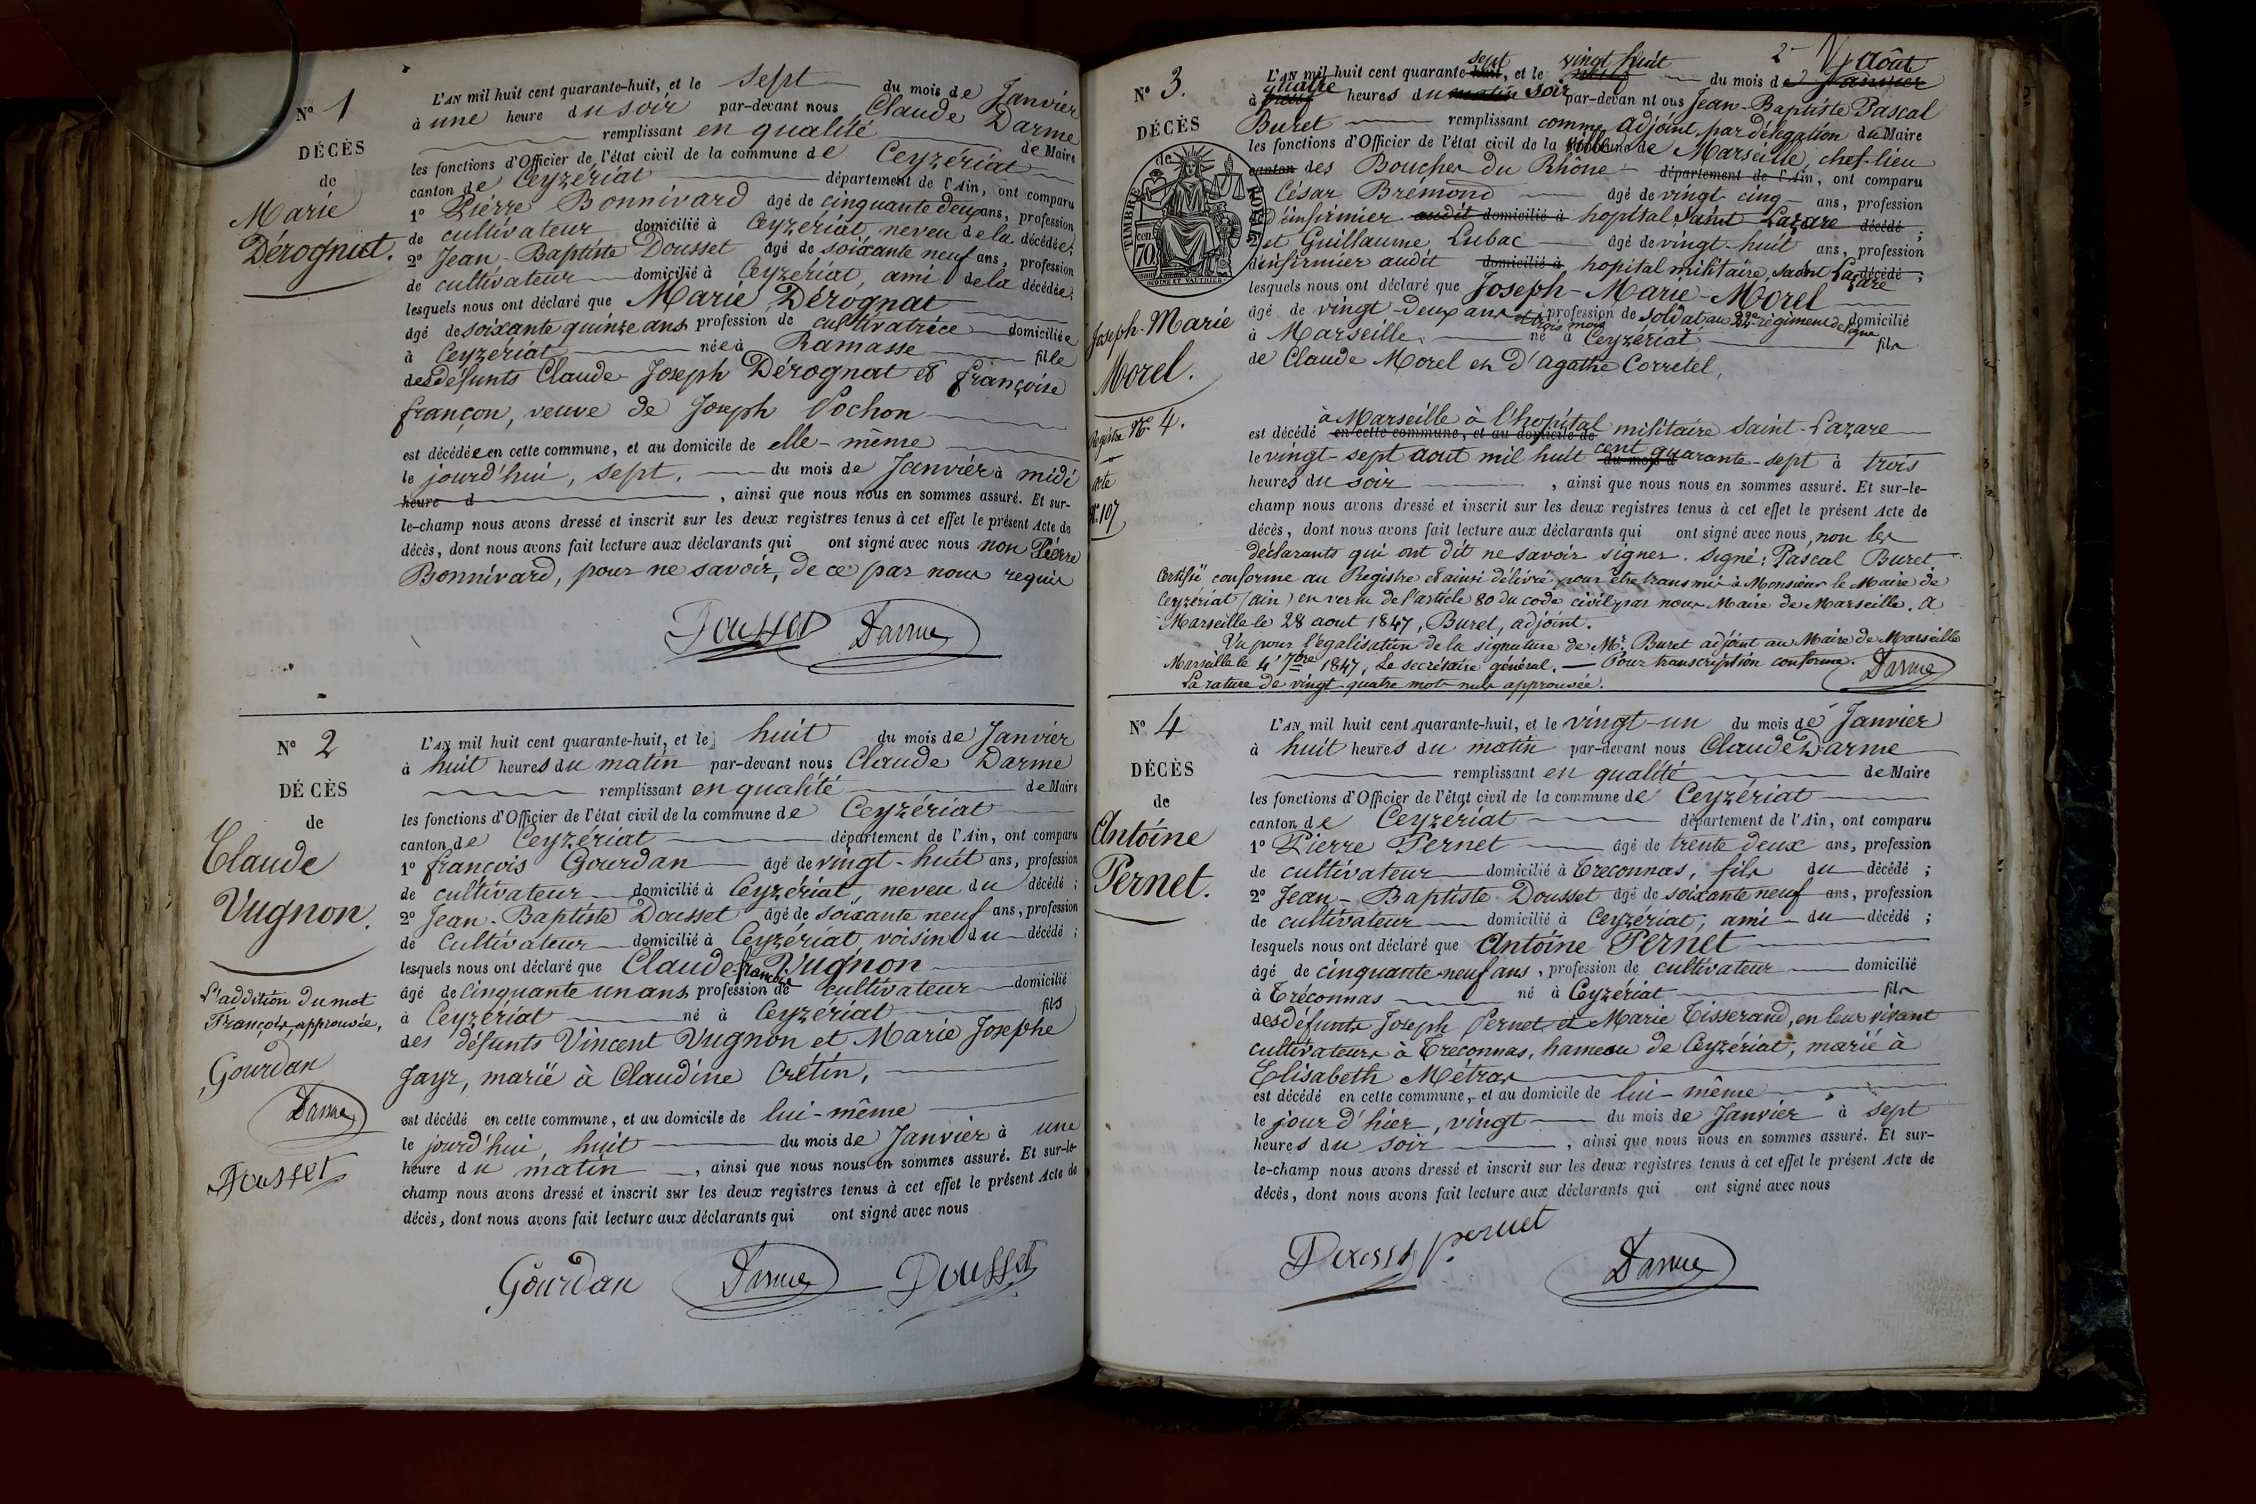 N° 1
DÉCÈS
de
Marie
Dérognat.
L'AN mil huit cent quarante-huit, et le sept du mois de Janvier
à une heure du soir par-devant nous Claude Darme
remplissant en qualité de Maire
les fonctions d'Officier de l'état civil de la commune de Ceyzériat
canton de Ceyzériat département de l'Ain, ont comparu
1° Pierre Bonnivard âgé de cinquante deux ans, profession
de cultivateur domicilié à Ceyzériat, neveu de la décédée;
2° Jean-Baptiste Dousset âgé de soixante neuf ans, profession
de cultivateur domicilié à Ceyzériat, ami de la décédée;
lesquels nous ont déclaré que Marie Dérognat
âgé de soixante quinze ans profession de cultivatrice domiciliée
à Ceyzériat née à Ramasse fille
des défunts Claude Joseph Dérognat et françoise
françon, veuve de Joseph Pochon
est décédée en cette commune, et au domicile de elle-même
le jourd'hui, sept. du mois de Janvier à midi
heure d , ainsi que nous nous en sommes assuré. Et sur-
le-champ nous avons dressé et inscrit sur les deux registres tenus à cet effet le présent Acte de
décès, dont nous avons fait lecture aux déclarants qui ont signé avec nous non Pierre
Bonnivard, pour ne savoir, de ce par nous requis
Dousset Darme
N° 2
DÉCÈS
de
Claude
Vugnon.
L'addition du mot
François, approuvée,
Gourdan
Darme
Dousset
L'AN mil huit cent quarante-huit, et le huit du mois de Janvier
à huit heures du matin par-devant nous Claude Darme
remplissant en qualité de Maire
les fonctions d'Officier de l'état civil de la commune de Ceyzériat
canton de Ceyzériat département de l'Ain, ont comparu
1° françois Gourdan âgé de vingt-huit ans, profession
de cultivateur domicilié à Ceyzériat, neveu du décédé ;
2° Jean-Baptiste Dousset âgé de soixante neuf ans, profession
de cultivateur domicilié à Ceyzériat voisin du décédé ;
lesquels nous ont déclaré que Claude françois Vugnon
âgé de cinquante un ans profession de cultivateur domicilié
à Ceyzériat né à Ceyzériat fils
des défunts Vincent Vugnon et Marie Josephe
Jayr, marié à Claudine Crétin,
est décédé en cette commune, et au domicile de lui-même
le jourd'hui, huit du mois de Janvier à une
heure du matin , ainsi que nous nous en sommes assuré. Et sur-le-
champ nous avons dressé et inscrit sur les deux registres tenus à cet effet le présent Acte de
décès, dont nous avons fait lecture aux déclarants qui ont signé avec nous
Gourdan Darme Dousset
N° 3.
DÉCÈS
de
TIMBRE ROYAL
cen 70
Joseph-Marie
Morel.
Registre N° 4.
acte
N° 107
sept vingt huit août
L'AN mil huit cent quarante-huit, et le du mois de Janvier
quatre
à heures du matin soir par-devan nt ous Jean-Baptiste Pascal
Buret remplissant comme adjoint par délégation du Maire
les fonctions d'Officier de l'état civil de la commune de Marseille, chef-lieu
canton des Bouches du Rhône département de l'Ain, ont comparu
César Brémond âgé de vingt cinq ans, profession
d'infirmier audit domicilié à hopital saint Lazare décédé ;
2° et Guillaume Lubac âgé de vingt-huit ans, profession
d'infirmier audit domicilié à hopital militaire saint Lazare décédé ;
lesquels nous ont déclaré que Joseph-Marie-Morel
âgé de vingt-deux ans et trois mois profession de soldat au 22e régiment de ligne domicilié
à Marseille. né à Ceyzériat fils
de Claude Morel et D'agathe Corretel,
à Marseille à l'hopital militaire saint-Lazare
est décédé en cette commune, et au domicile de
le vingt-sept aout mil huit cent quarante-sept du mois d à trois
heures du soir , ainsi que nous nous en sommes assuré. Et sur-le-
champ nous avons dressé et inscrit sur les deux registres tenus à cet effet le présent Acte de
décès, dont nous avons fait lecture aux déclarants qui ont signé avec nous, non les
déclarants qui ont dit ne savoir signer. signé: Pascal Buret
Certifié conforme au Registre et ainsi délivré pour être transmis à Monsieur le Maire de
Ceyzériat (ain) en vertu de l'article 80 du code civil par nous Maire de Marseille. A
Marseille le 28 aout 1847, Buret, adjoint.
Vu pour légalisation de la signature de Mr. Buret adjoint au Maire de Marseille
Marseille le 4 7bre 1847, Le secrétaire général. — Pour transcription conforme. Darme
La rature de vingt-quatre mots nuls approuvée.
N° 4
DÉCÈS
de
Antoine
Pernet.
L'AN mil huit cent quarante-huit, et le vingt-un du mois de Janvier
à huit heures du matin par-devant nous Claude Darme
remplissant en qualité de Maire
les fonctions d'Officier de l'état civil de la commune de Ceyzériat
canton de Ceyzériat département de l'Ain, ont comparu
1° Pierre Pernet âgé de trente deux ans, profession
de cultivateur domicilié à Treconnas, fils du décédé ;
2° Jean-Baptiste Dousset âgé de soixante neuf ans, profession
de cultivateur domicilié à Ceyzériat, ami du décédé ;
lesquels nous ont déclaré que Antoine Pernet
âgé de cinquante-neuf ans, profession de cultivateur domicilié
à Tréconnas né à Ceyzériat fils
des défunts Joseph Pernet et Marie Tisserand, en leur vivant
cultivateurs à Tréconnas, hameau de Ceyzériat, marié à
Elisabeth Métras
est décédé en cette commune, et au domicile de lui-même
le jour d'hier, vingt du mois de Janvier à sept
heures du soir , ainsi que nous nous en sommes assuré. Et sur-
le-champ nous avons dressé et inscrit sur les deux registres tenus à cet effet le présent Acte de
décès, dont nous avons fait lecture aux déclarants qui ont signé avec nous
Dousset pernet Darme